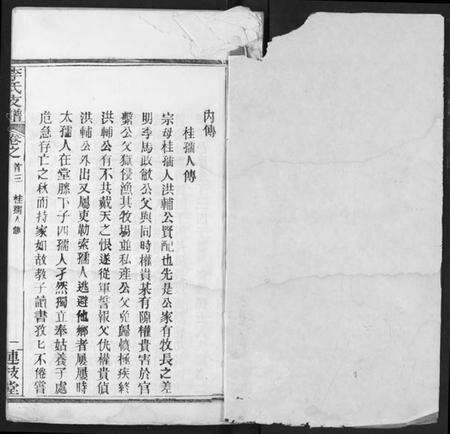 內傳
桂孺人傳
宗母桂孺人洪輔公賢配也先是公家有牧長之差
明季馬政敝公父與同時權貴某有隙權貴害於官
繫公父獄侵漁其牧場並私產公父兌歸憤極疾終
洪輔公有不共戴天之恨遂從軍誓報父仇權貴偵
洪輔公外出又屬吏勒索孺人逃避他鄉者屢屢時
太孺人在堂膝下子四孺人孑然獨立奉姑養子處
危急存亡之秋而持家如故教子讀書孜孜不倦嘗
李氏支譜
卷之首三
桂孺人傳
一
連枝堂